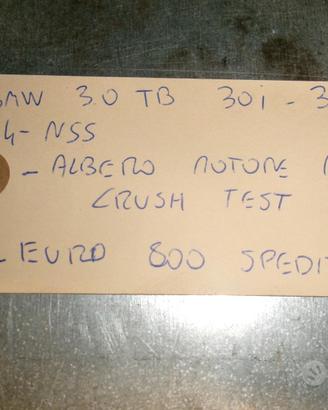 BMW 3.0 TB 30i - 3
4- NSS
- ALBERO MOTORE
CRUSH TEST
EURO 800 SPEDI